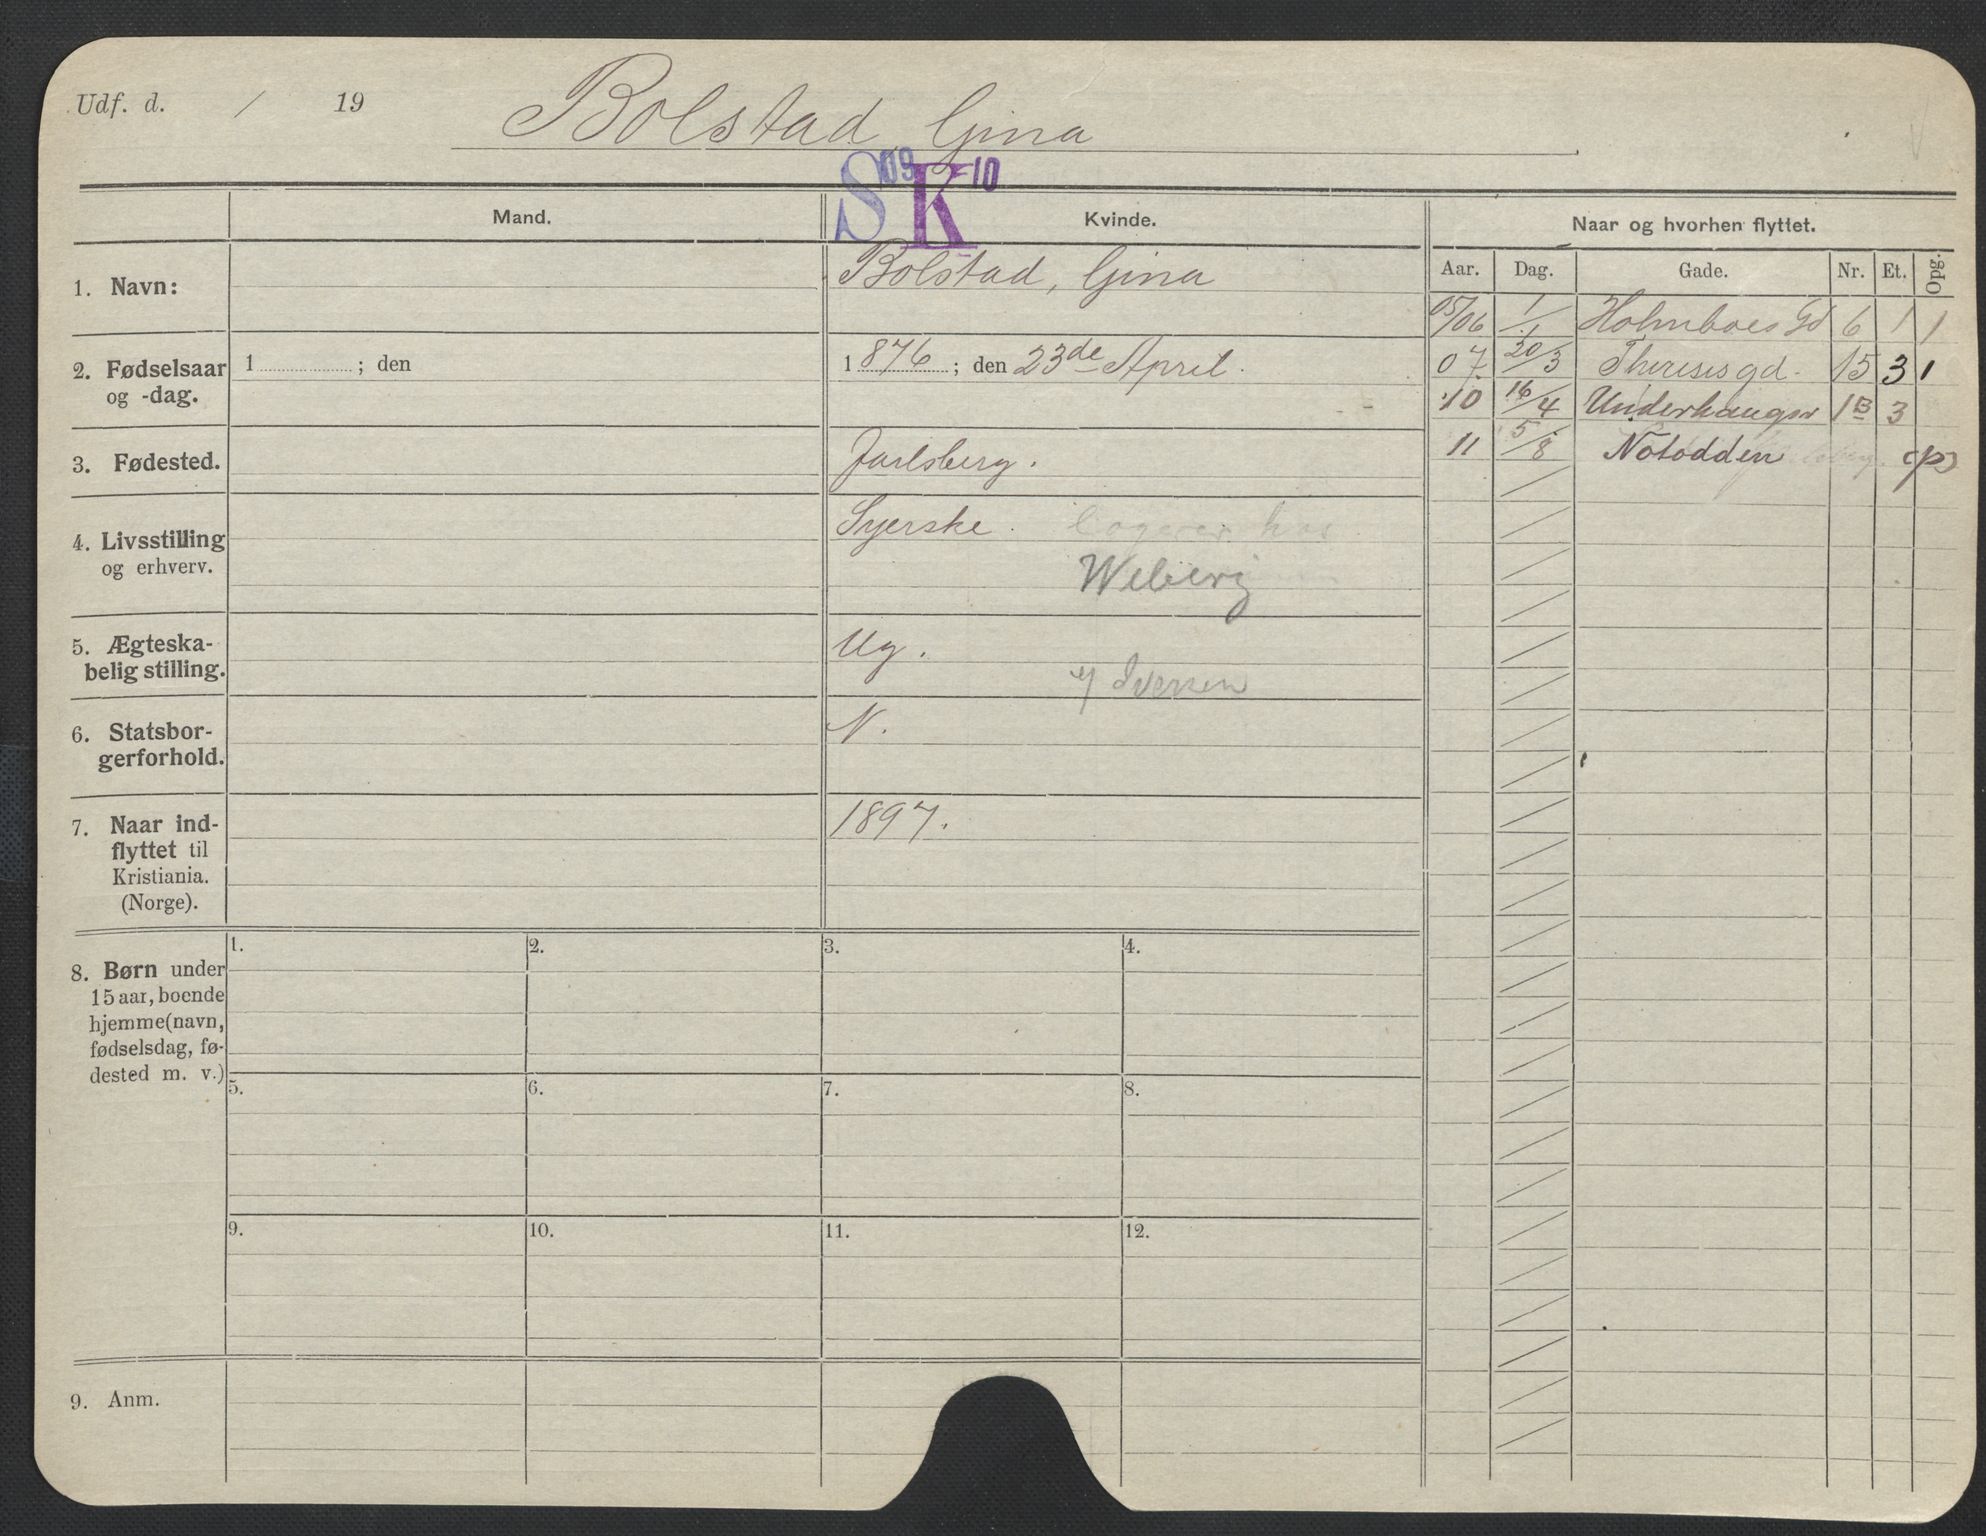 Udf. d. / 19 Bolstad, Gina
S09 K10
Mand. Kvinde. Naar og hvorhen flyttet.
Aar. Dag. Gade. Nr. Et. Opg.
1. Navn: Bolstad, Gina
05/06 1/1 Holmboes Gd 6 1 1
2. Fødselsaar og -dag. 1 ; den 1876 ; den 23de April.
07. 20/3 Thereses gd. 15 3 1
10 16/4 Underhaugsv 1B 3
3. Fødested. Jarlsberg.
11 5/8 Notodden (p)
4. Livsstilling og erhverv. Syerske. Logerer hos
Weberg
5. Ægteska-
belig stilling. Ug.
Iversen
6. Statsbor-
gerforhold. N.
7. Naar ind-
flyttet til
Kristiania.
(Norge). 1897.
8. Børn under
15 aar, boende
hjemme (navn,
fødselsdag, fø-
dested m. v.)
1. 2. 3. 4.
5. 6. 7. 8.
9. 10. 11. 12.
9. Anm.